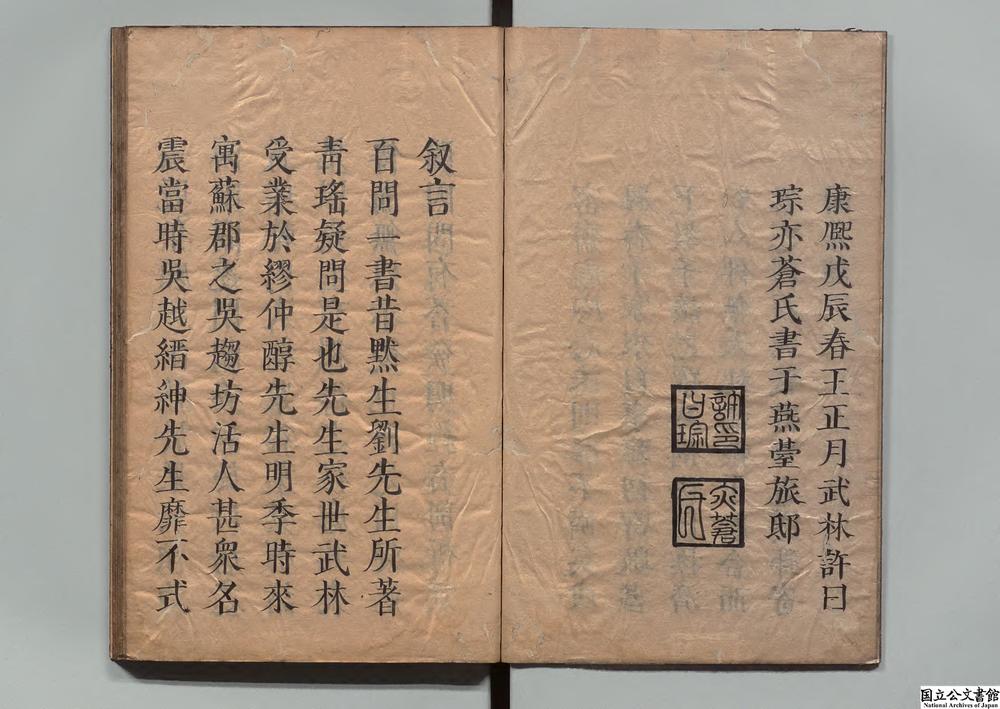 康熈戊辰春王正月武林許曰
琮亦蒼氏書于燕臺旅邸
許曰琮印
亦蒼氏
叙言
百問一書昔黙生劉先生所著
青瑤疑問是也先生家世武林
受業於繆仲醇先生明季時來
寓蘇郡之吳趨坊活人甚衆名
震當時吳越縉紳先生靡不式
国立公文書館
National Archives of Japan